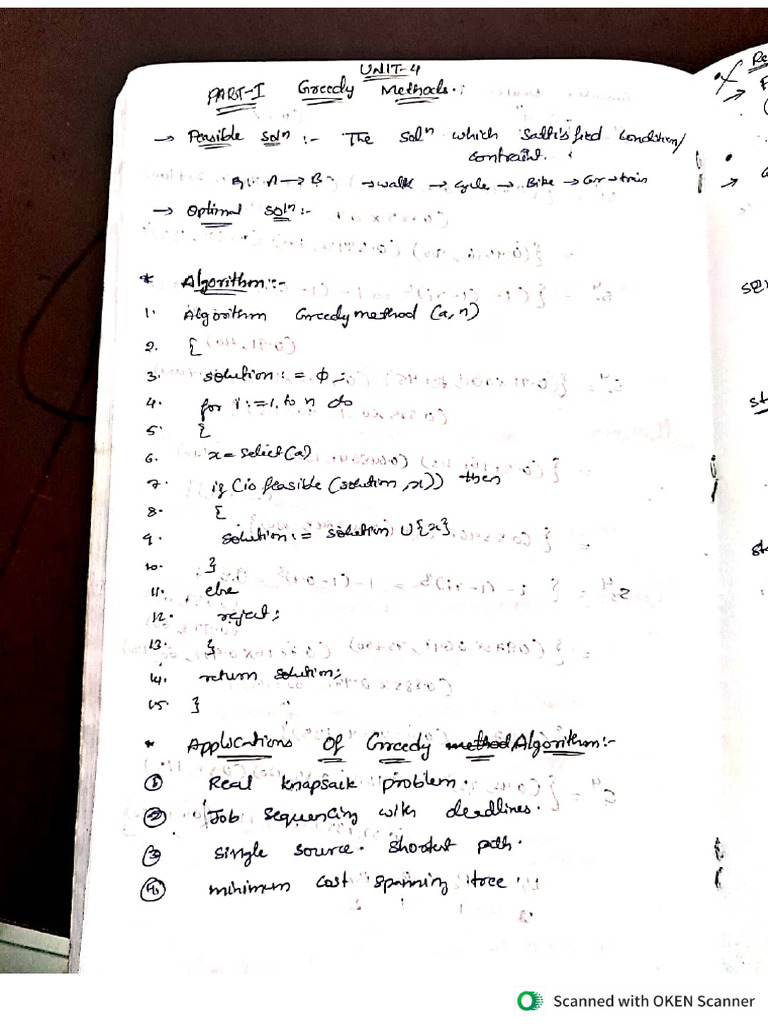 UNIT-4
PART-I Greedy Methods:
→ Feasible Solⁿ :- The Solⁿ which Sattisfied condition/
contraint.
Eg: A → B → walk → Cycle → Bike → Car → train
→ Optimal Solⁿ :-
* Algorithm :-
1. Algorithm Greedymethod (a, n)
2. {
3. solution := ϕ ;
4. for i := 1, to n do
5. {
6. x = select (a)
7. if (is feasible (solution, x)) then
8. {
9. solution := solution ∪ {x}
10. }
11. else
12. reject ;
13. }
14. return solution;
15. }
* Applications Of Greedy method Algorithm :-
① Real knapsack problem.
② Job sequencing with deadlines.
③ single source. Shortest path.
④ minimum cost spanning tree.
Scanned with OKEN Scanner